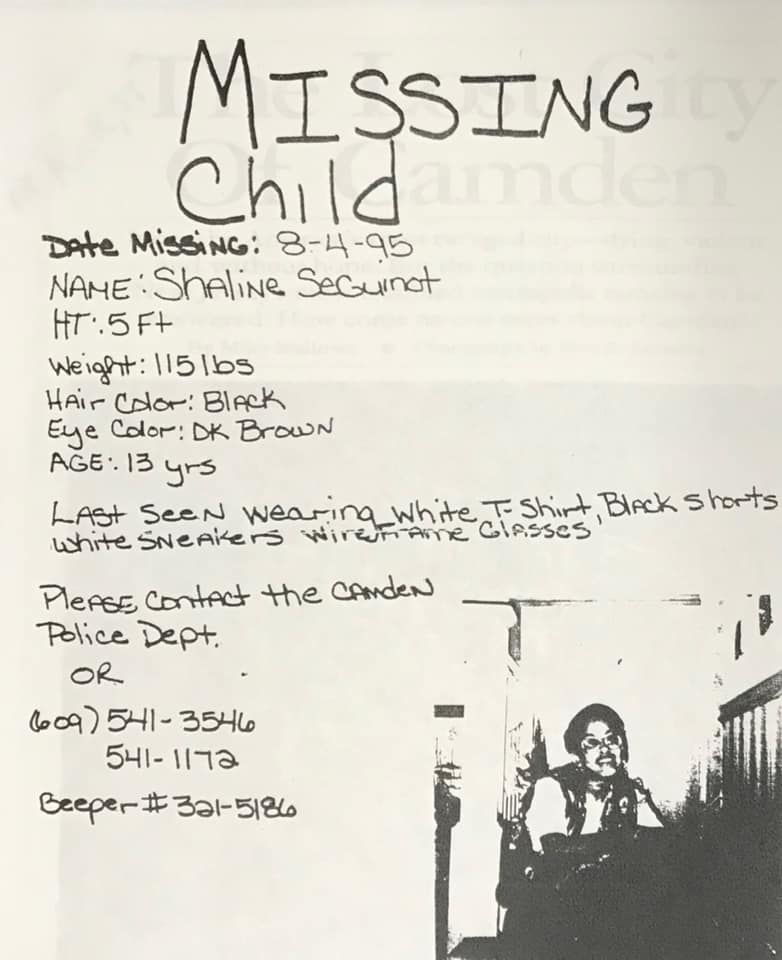 The Lost City
Of Camden
MISSING
Child
Date Missing: 8-4-95
NAME: Shaline Seguinot
HT: 5 Ft
Weight: 115 lbs
Hair Color: Black
Eye Color: DK Brown
AGE: 13 yrs
LAST SEEN Wearing White T-Shirt, Black shorts
White SNEAKERS wireframe Glasses
Please Contact the Camden
Police Dept.
OR
(609) 541-3546
541-1172
Beeper # 321-5186